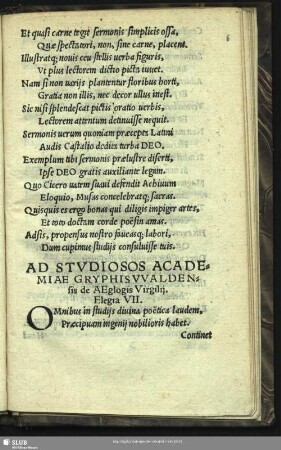 6
Et quasi carne tegit sermonis simplicis ossa,
Quæ spectatori, non, sine carne, placent.
Illustratq; nouis ceu stellis uerba figuris,
Vt plus lectorem dictio picta iuuet.
Nam si non uarijs plantentur floribus horti,
Gratia non illis, nec decor ullus inest.
Sic nisi splendescat pictis oratio uerbis,
Lectorem attentum detinuisse nequit.
Sermonis uerum quoniam præcepta Latini
Audis Castalio dedita turba DEO.
Exemplum tibi sermonis prælustre diserti,
Ipse DEO gratis auxiliante legam.
Quo Cicero uatem suaui defendit Achiuum
Eloquio, Musas concelebratq; sacras.
Quisquis es ergo bonas qui diligis impiger artes,
Et toto doctam corde poësin amas.
Adsis, propensus nostro faueasq; labori,
Dum cupimus studijs consuluisse tuis.
AD STVDIOSOS ACADE-
MIAE GRYPHISVVALDEN-
sis de AEglogis Virgilij.
Elegia VII.
OMnibus in studijs diuina poëtica laudem,
Præcipuam ingenij nobilioris habet.
Continet
SLUB